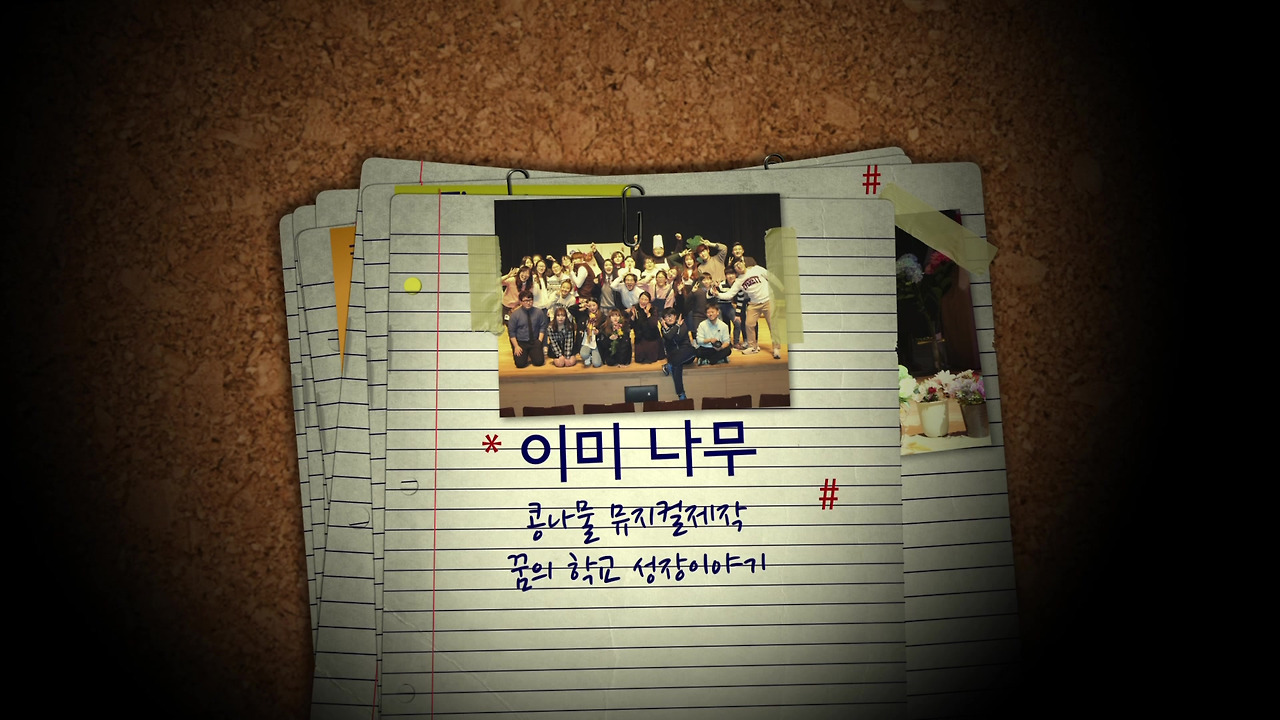 #
* 이미 나무
#
콩나물 뮤지컬제작
꿈의 학교 성장이야기